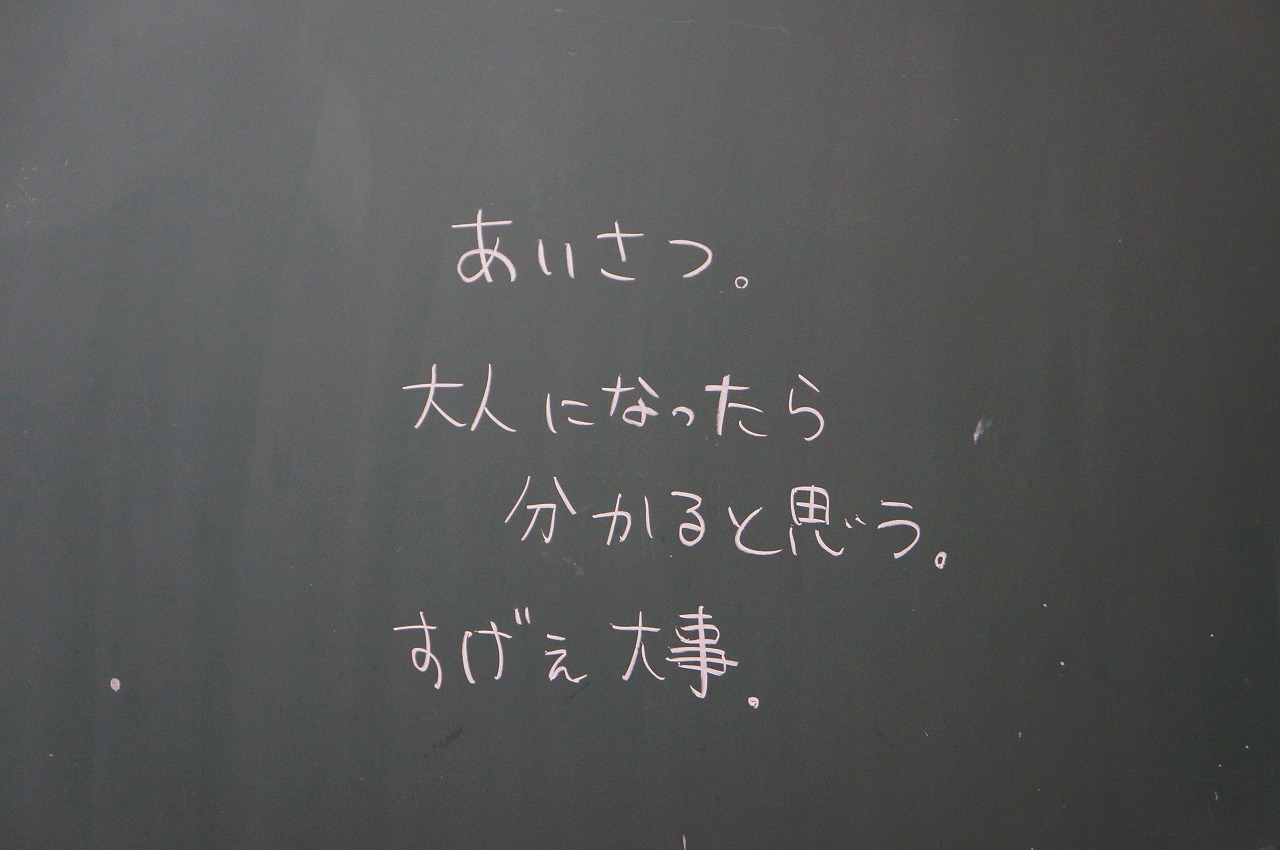 あいさつ。
大人になったら
分かると思う。
すげぇ大事。